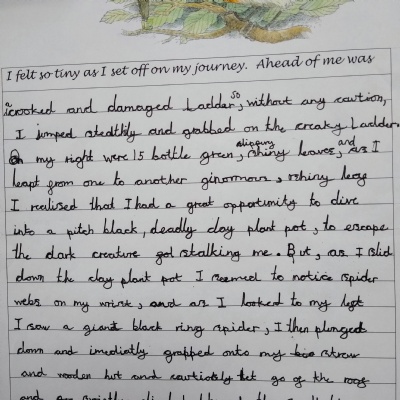 I felt so tiny as I set off on my journey. Ahead of me was
a crooked and damaged Ladder, so, without any caution,
I jumped stealthly and grabbed on the creaky Ladder.
On my right were 15 bottle green, slipping, shiny leaves, and as I
leapt from one to another ginormous, shiny leag
I realised that I had a great opportunity to dive
into a pitch black, deadly clay plant pot, to escape
the dark creature stalking me. But, as I slid
down the clay plant pot I seemed to notice spider
webs on my wrist, and as I looked to my left
I saw a giant black ring spider, I then plunged
down and imediatly grapped onto my straw
and wooden hut and cautiously let go of the roof
and